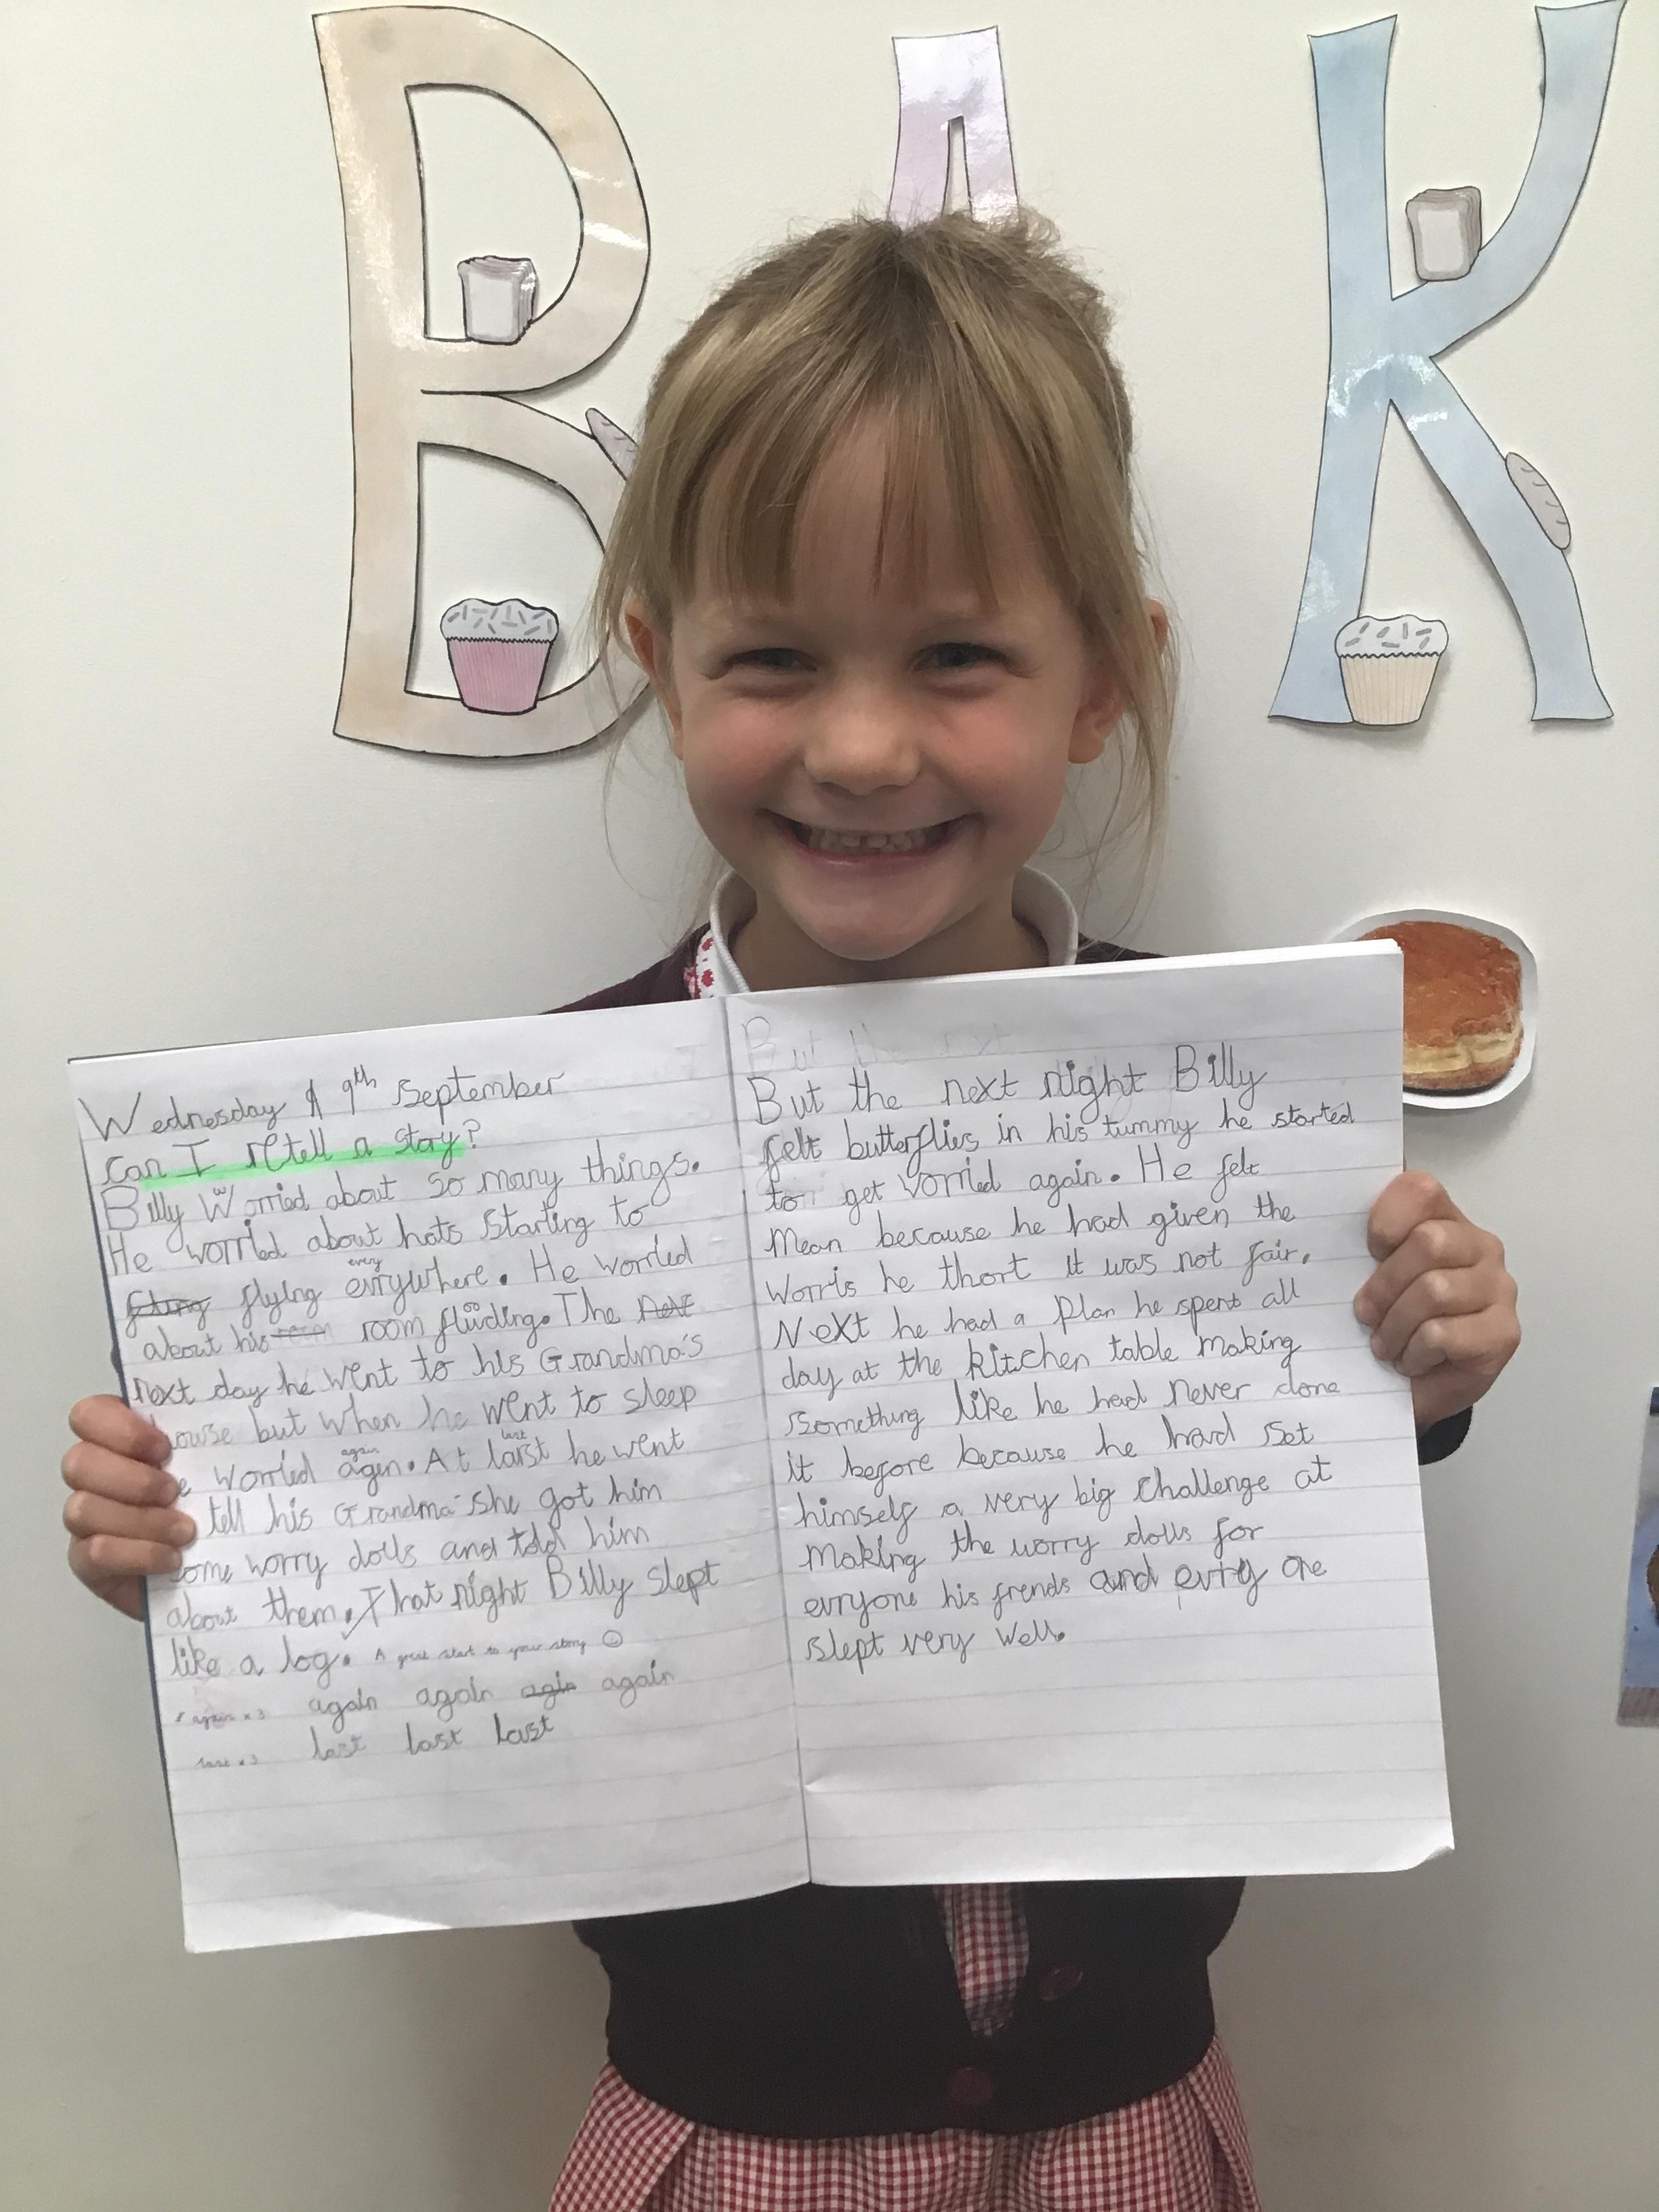 B A K
Wednesday 9th September
Can I retell a story?
Billy Worried about so many things.
He worried about hats starting to
every
flying evrywhere. He worried
about his room room fluding. The next
next day he went to his Grandma's
house but when he went to sleep
again last
e worried agen. At larst he went
tell his Grandma she got him
some worry dolls and told him
about them. That night Billy slept
like a log. A great start to your story
again x 3 again again agin again
last x 3 last last last
But the next
But the next night Billy
felt butterflies in his tummy he started
to get worried again. He felt
mean because he had given the
worris he thort it was not fair.
Next he had a plan he spent all
day at the kitchen table making
something like he had never done
it before because he had set
himself a very big challenge at
making the worry dolls for
evryone his frends and evry one
slept very well.